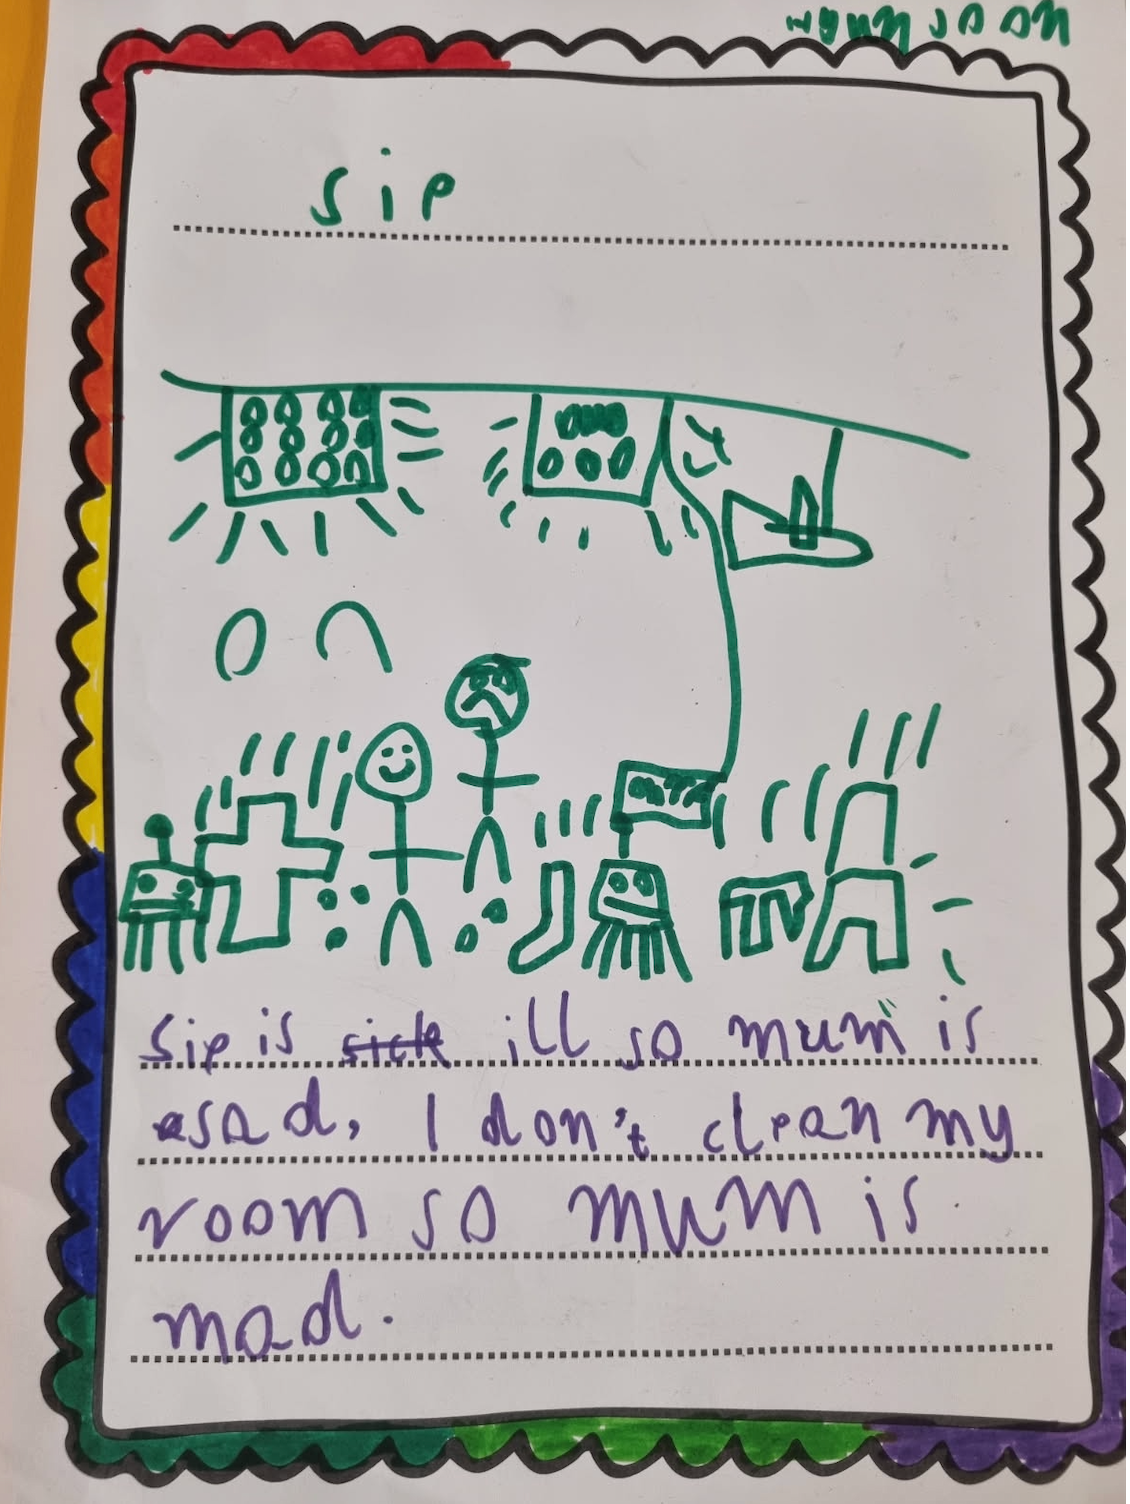 sip
sip is sick ill so mum is
sad, I don't clean my
room so mum is
mad.